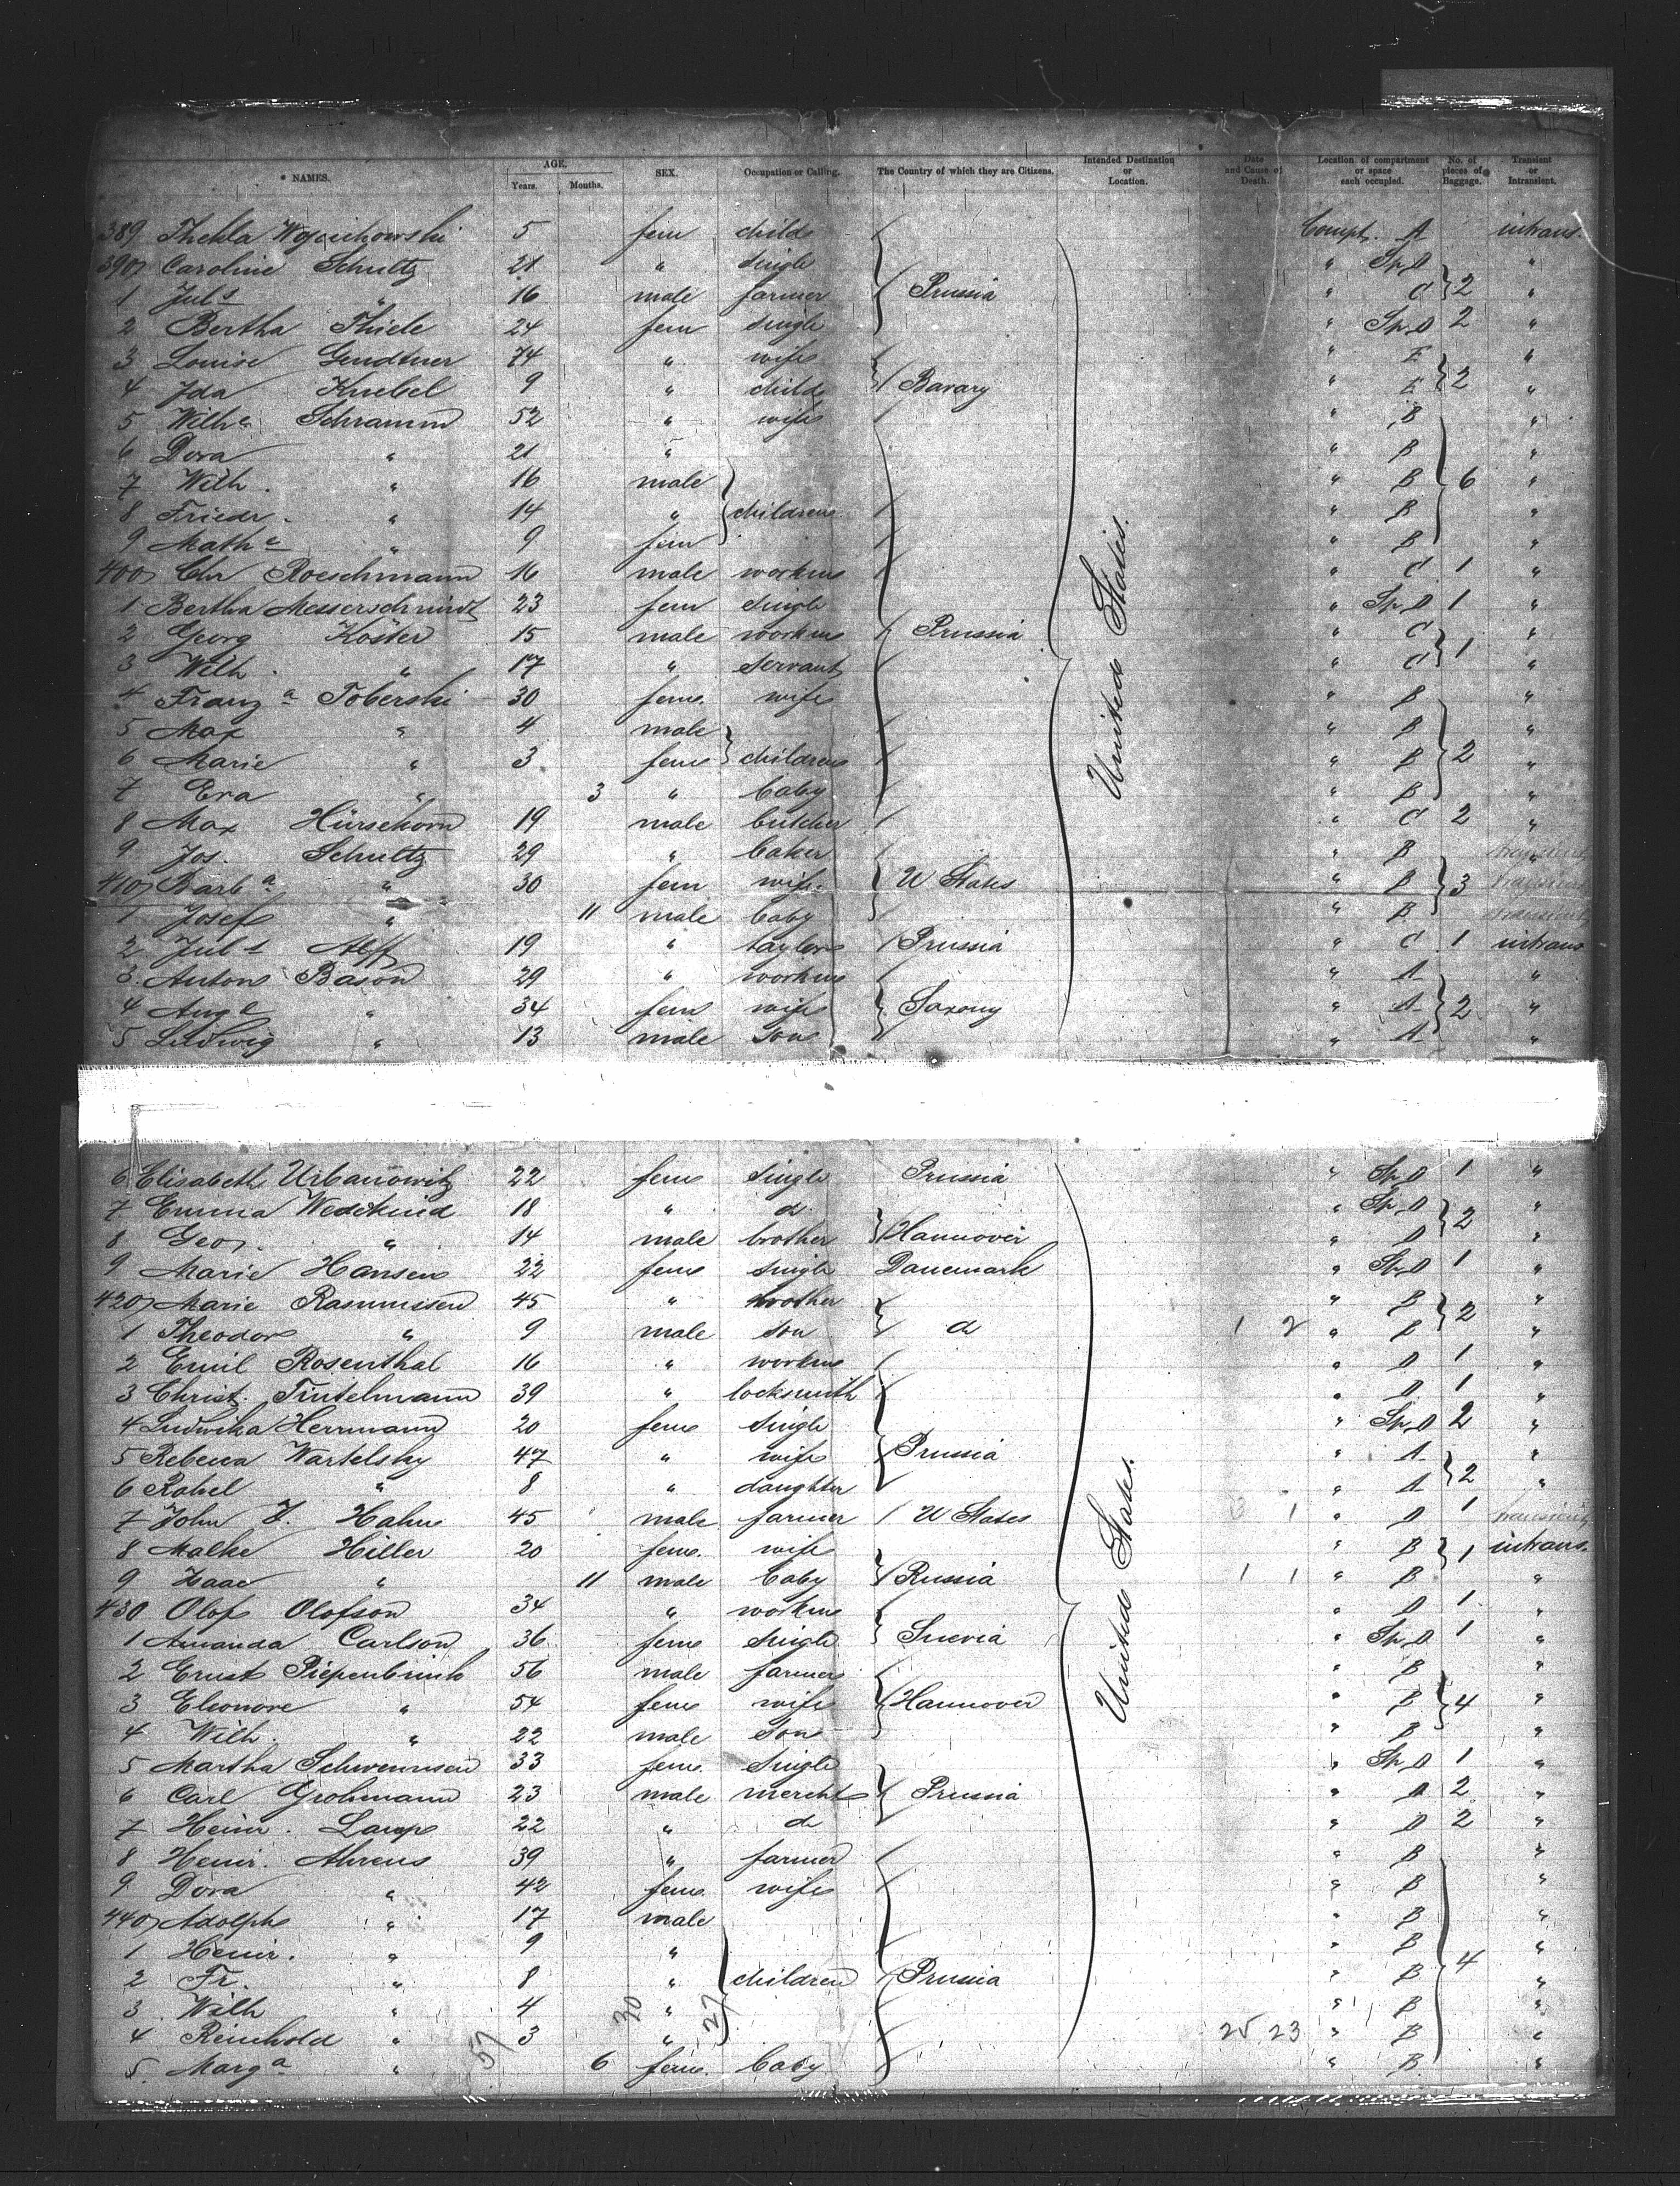 * NAMES. AGE. Years. Months. SEX. Occupation or Calling. The Country of which they are Citizens. Intended Destination or Location. Date and Cause of Death. Location of compartment or space each occupied. No. of pieces of Baggage. Transient or Intransient.
389 Thekla 5 fem child Compt. A intrans.
390 Caroline Schultz 21 " single " Sp D "
1 Juls " 16 male farmer Prussia " C 2 "
2 Bertha Thiele 24 fem single " Sp D 2 "
3 Louise Gendtner 74 " wife " E "
4 Ida Knebel 9 " child Bavary " E 2 "
5 Wilhe Schramm 52 " wife " B "
6 Dora " 21 " " B "
7 Wilh. " 16 male " B 6 "
8 Friedr. " 14 " children " B "
9 Mathe " 9 fem " B "
400 Chr Roeschmann 16 male workm " C 1 "
1 Bertha Messerschmidt 23 fem single " Sp D 1 "
2 Georg Köster 15 male workm Prussia " C 1 "
3 Wilh. " 17 " servant " C "
4 Franza Toberski 30 fem. wife " B "
5 Max " 4 male " B "
6 Marie " 3 fem children " B 2 "
7 Eva " 3 " baby " B "
8 Max Hürschorn 19 male butcher " C 2 "
9 Jos. Schultz 29 " baker " B transient
410 Barba " 30 fem wife. U States " B 3 transient
1 Josef " 11 male baby " B transient
2 Juls Alff 19 " taylor Prussia " C 1 intrans
3 Anton Bason 29 " workm " A "
4 Auge " 34 fem wife Saxony " A 2 "
5 Ludwig " 13 male son " A "
United States.
6 Elisabeth Urbanowitz 22 fem single Prussia " Sp D 1 "
7 Emma Wedekind 18 " d " Sp D 2 "
8 Geor. " 14 male brother Hannover " D "
9 Marie Hansen 22 fem single Danemark " Sp D 1 "
420 Marie Rasmussen 45 " mother " B 2 "
1 Theodor " 9 male son d 1 2 " B "
2 Emil Rosenthal 16 " workm " D 1 "
3 Christ. Tintelmann 39 " locksmith " D 1 "
4 Ludwika Herrmann 20 fem single " Sp D 2 "
5 Rebecca Wartelsky 47 " wife Prussia " A 2 "
6 Rahel " 8 " daughter " A "
7 John F. Hahn 45 male farmer U States 1 " D 1 transient
8 Malke Hiller 20 fem. wife " B 1 intrans.
9 Isaac " 11 male baby Russia 1 1 " B "
430 Olof Olofson 34 " workm " D 1 "
1 Amanda Carlson 36 fem single Suevia " Sp D 1 "
2 Ernst Piepenbrink 56 male farmer " B "
3 Eleonore " 54 fem wife Hannover " B 4 "
4 Wilh. " 22 male son " B "
5 Martha Schwennsen 33 fem. single " Sp D 1 "
6 Carl Grohmann 23 male mercht Prussia " D 2 "
7 Heinr. Lamp 22 " d " D 2 "
8 Heinr. Ahrens 39 " farmer " B "
9 Dora " 42 fem wife " B "
440 Adolph " 17 male " B "
1 Heinr. " 9 " " B "
2 Fr. " 8 " children Prussia " B 4 "
3 Wilh " 4 " " B "
4 Reinhold " 3 " 25 23 " B "
5 Marga " 6 fem. baby " B "
United States.
57 30 27